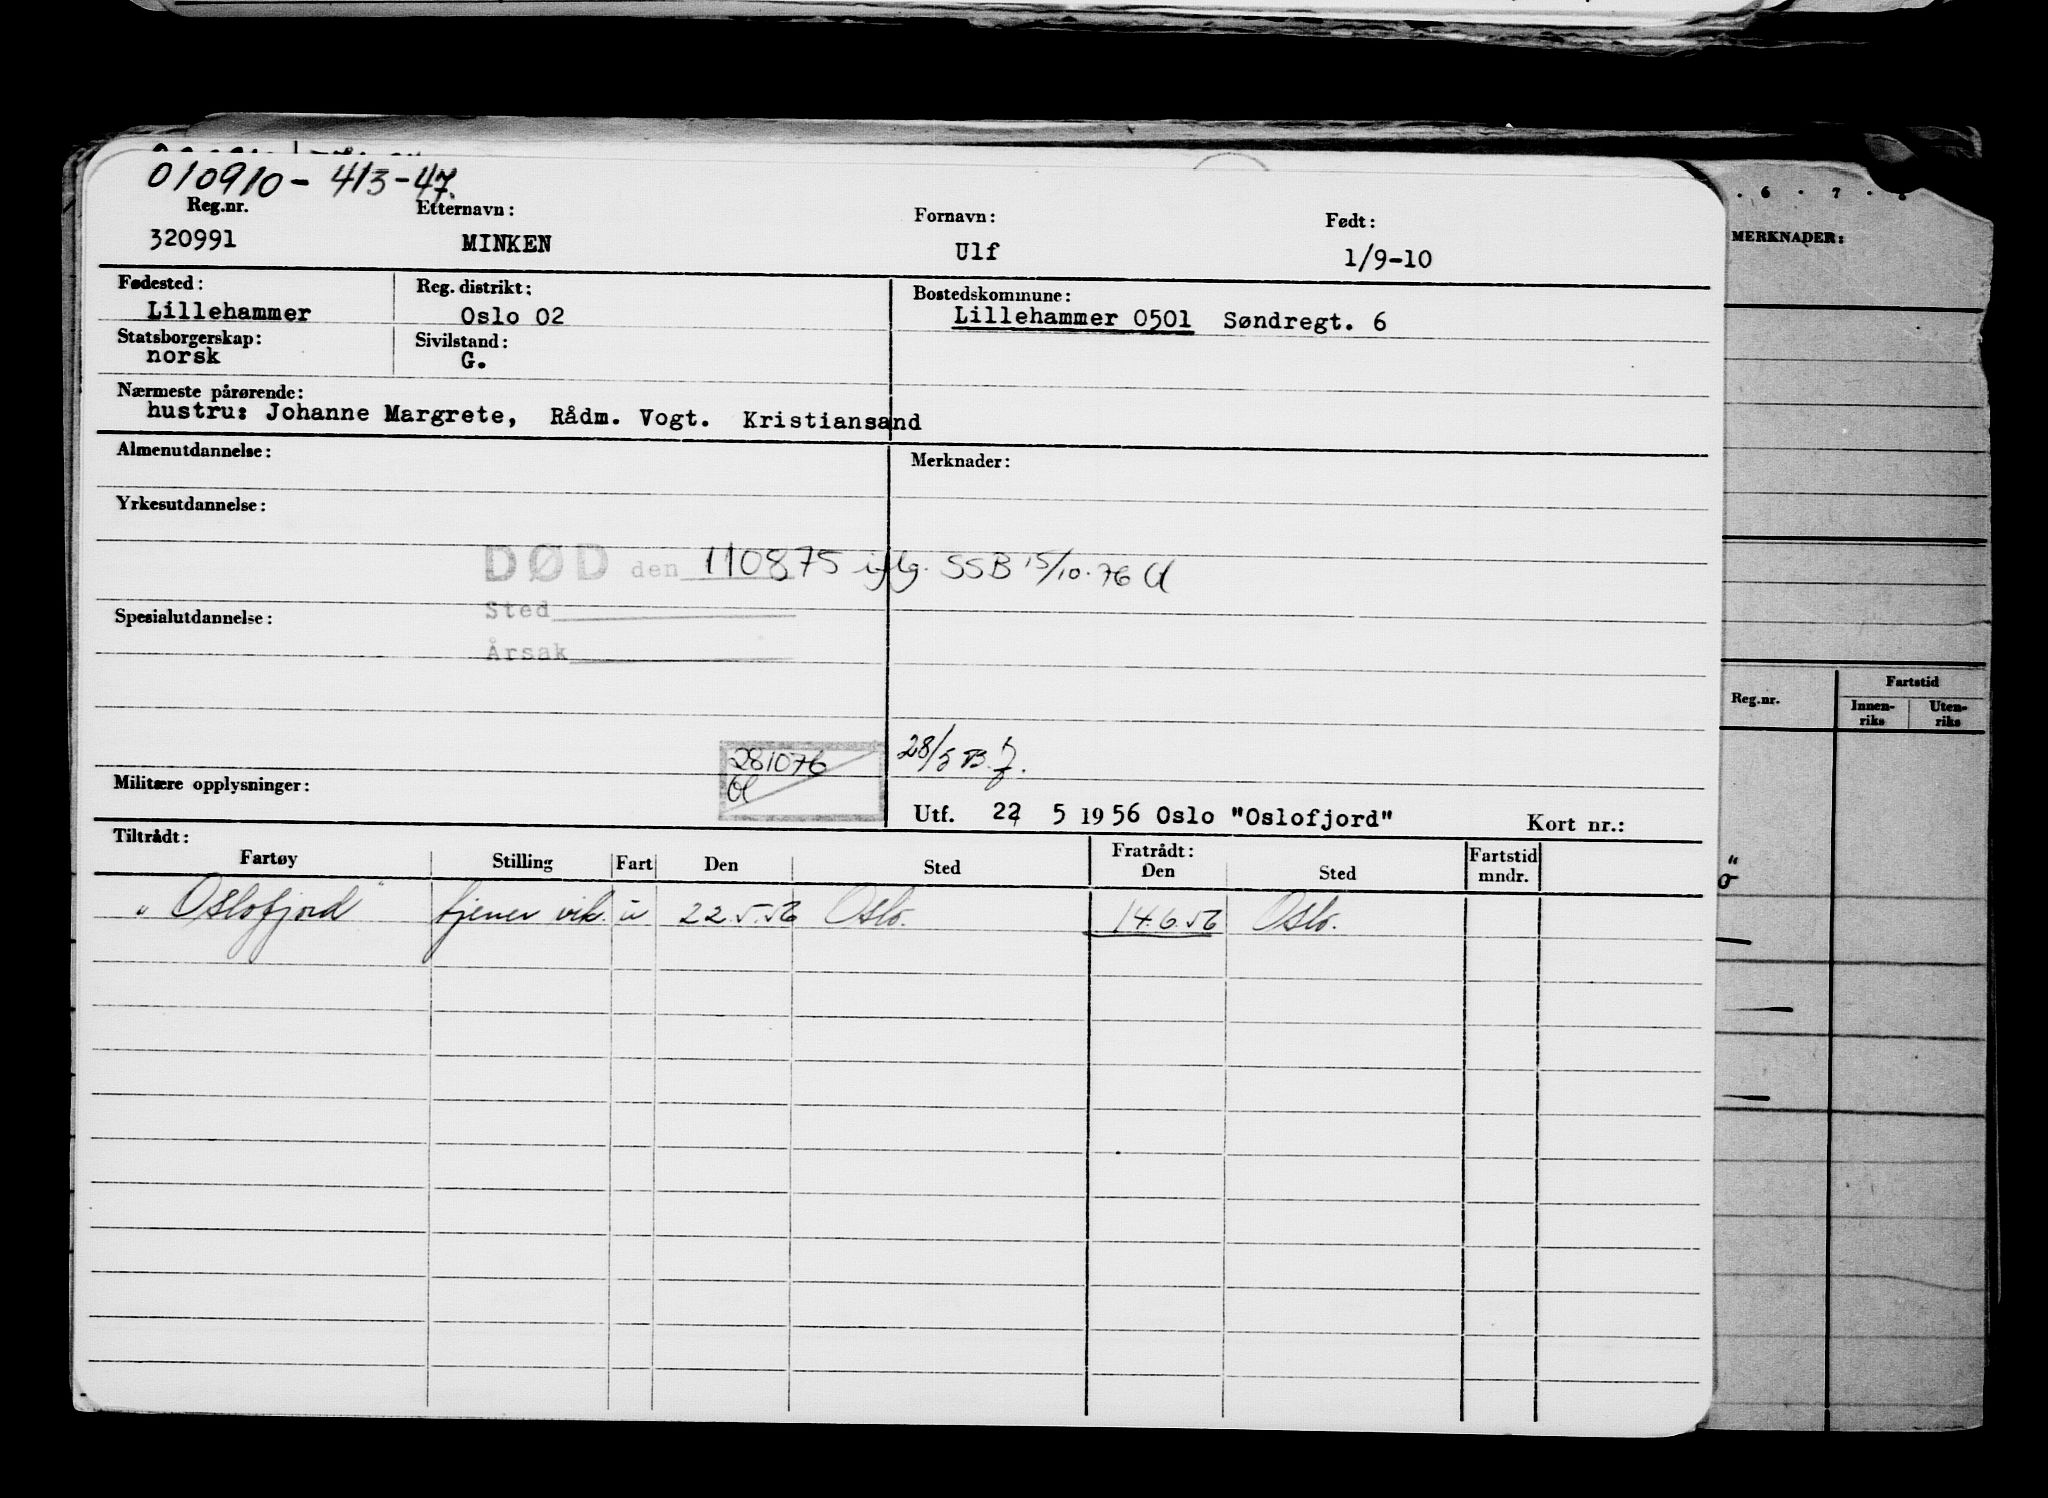 010910-413-47.
Reg.nr. Etternavn: Fornavn: Født:
320991 MINKEN Ulf 1/9-10
Fødested: Reg. distrikt: Bostedskommune:
Lillehammer Oslo 02 Lillehammer 0501 Søndregt. 6
Statsborgerskap: Sivilstand:
norsk G.
Nærmeste pårørende:
hustru: Johanne Margrete, Rådm. Vogt. Kristiansand
Almenutdannelse: Merknader:
Yrkesutdannelse:
DØD den 110875 iflg. SSB 15/10.76
Sted
Spesialutdannelse:
Årsak
281076 28/5
Militære opplysninger:
Utf. 22 5 1956 Oslo "Oslofjord" Kort nr.:
Tiltrådt: Fratrådt:
Fartøy Stilling Fart Den Sted Den Sted Fartstid mndr.
"Oslofjord" tjener vik. u 22.5.56 Oslo. 14.6.56 Oslo.
. 6 . 7 .
MERKNADER:
Reg.nr. Fartstid
Innen-riks Uten-riks